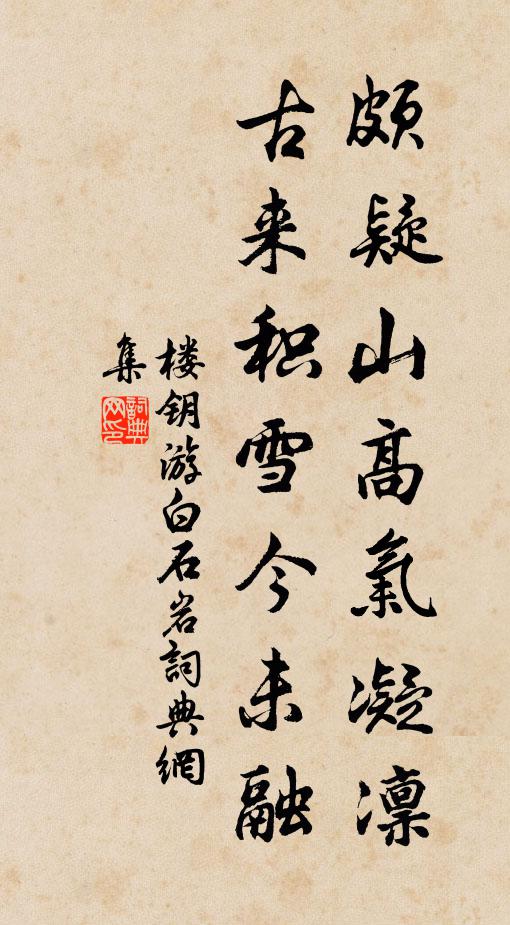 颇疑山高氣凝凛
古来积雪今未融
楼钥游白石岩詞典網
集
詞典网印